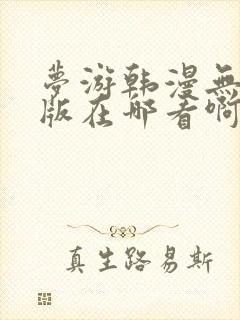 夢游韩漫無
版在哪看啊
真生路易斯